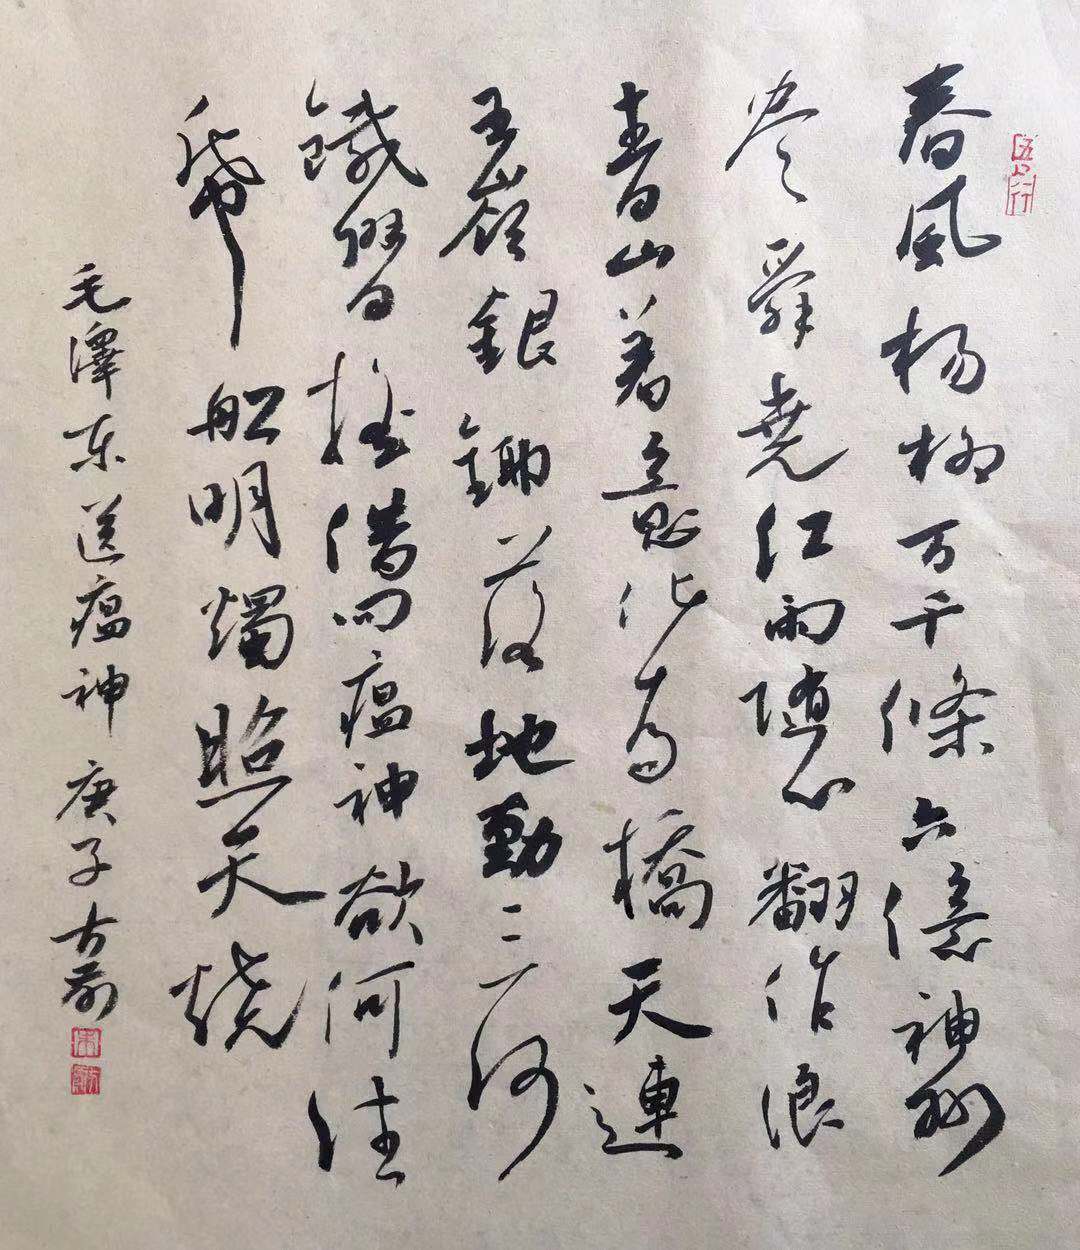 春風杨柳万千條六億神州
尽舜尧红雨随心翻作浪
青山着意化为橋天連
五嶺銀鋤落地動三河
鐵臂摇借问瘟神欲何往
帋船明燭照天燒
毛澤东送瘟神 庚子 古